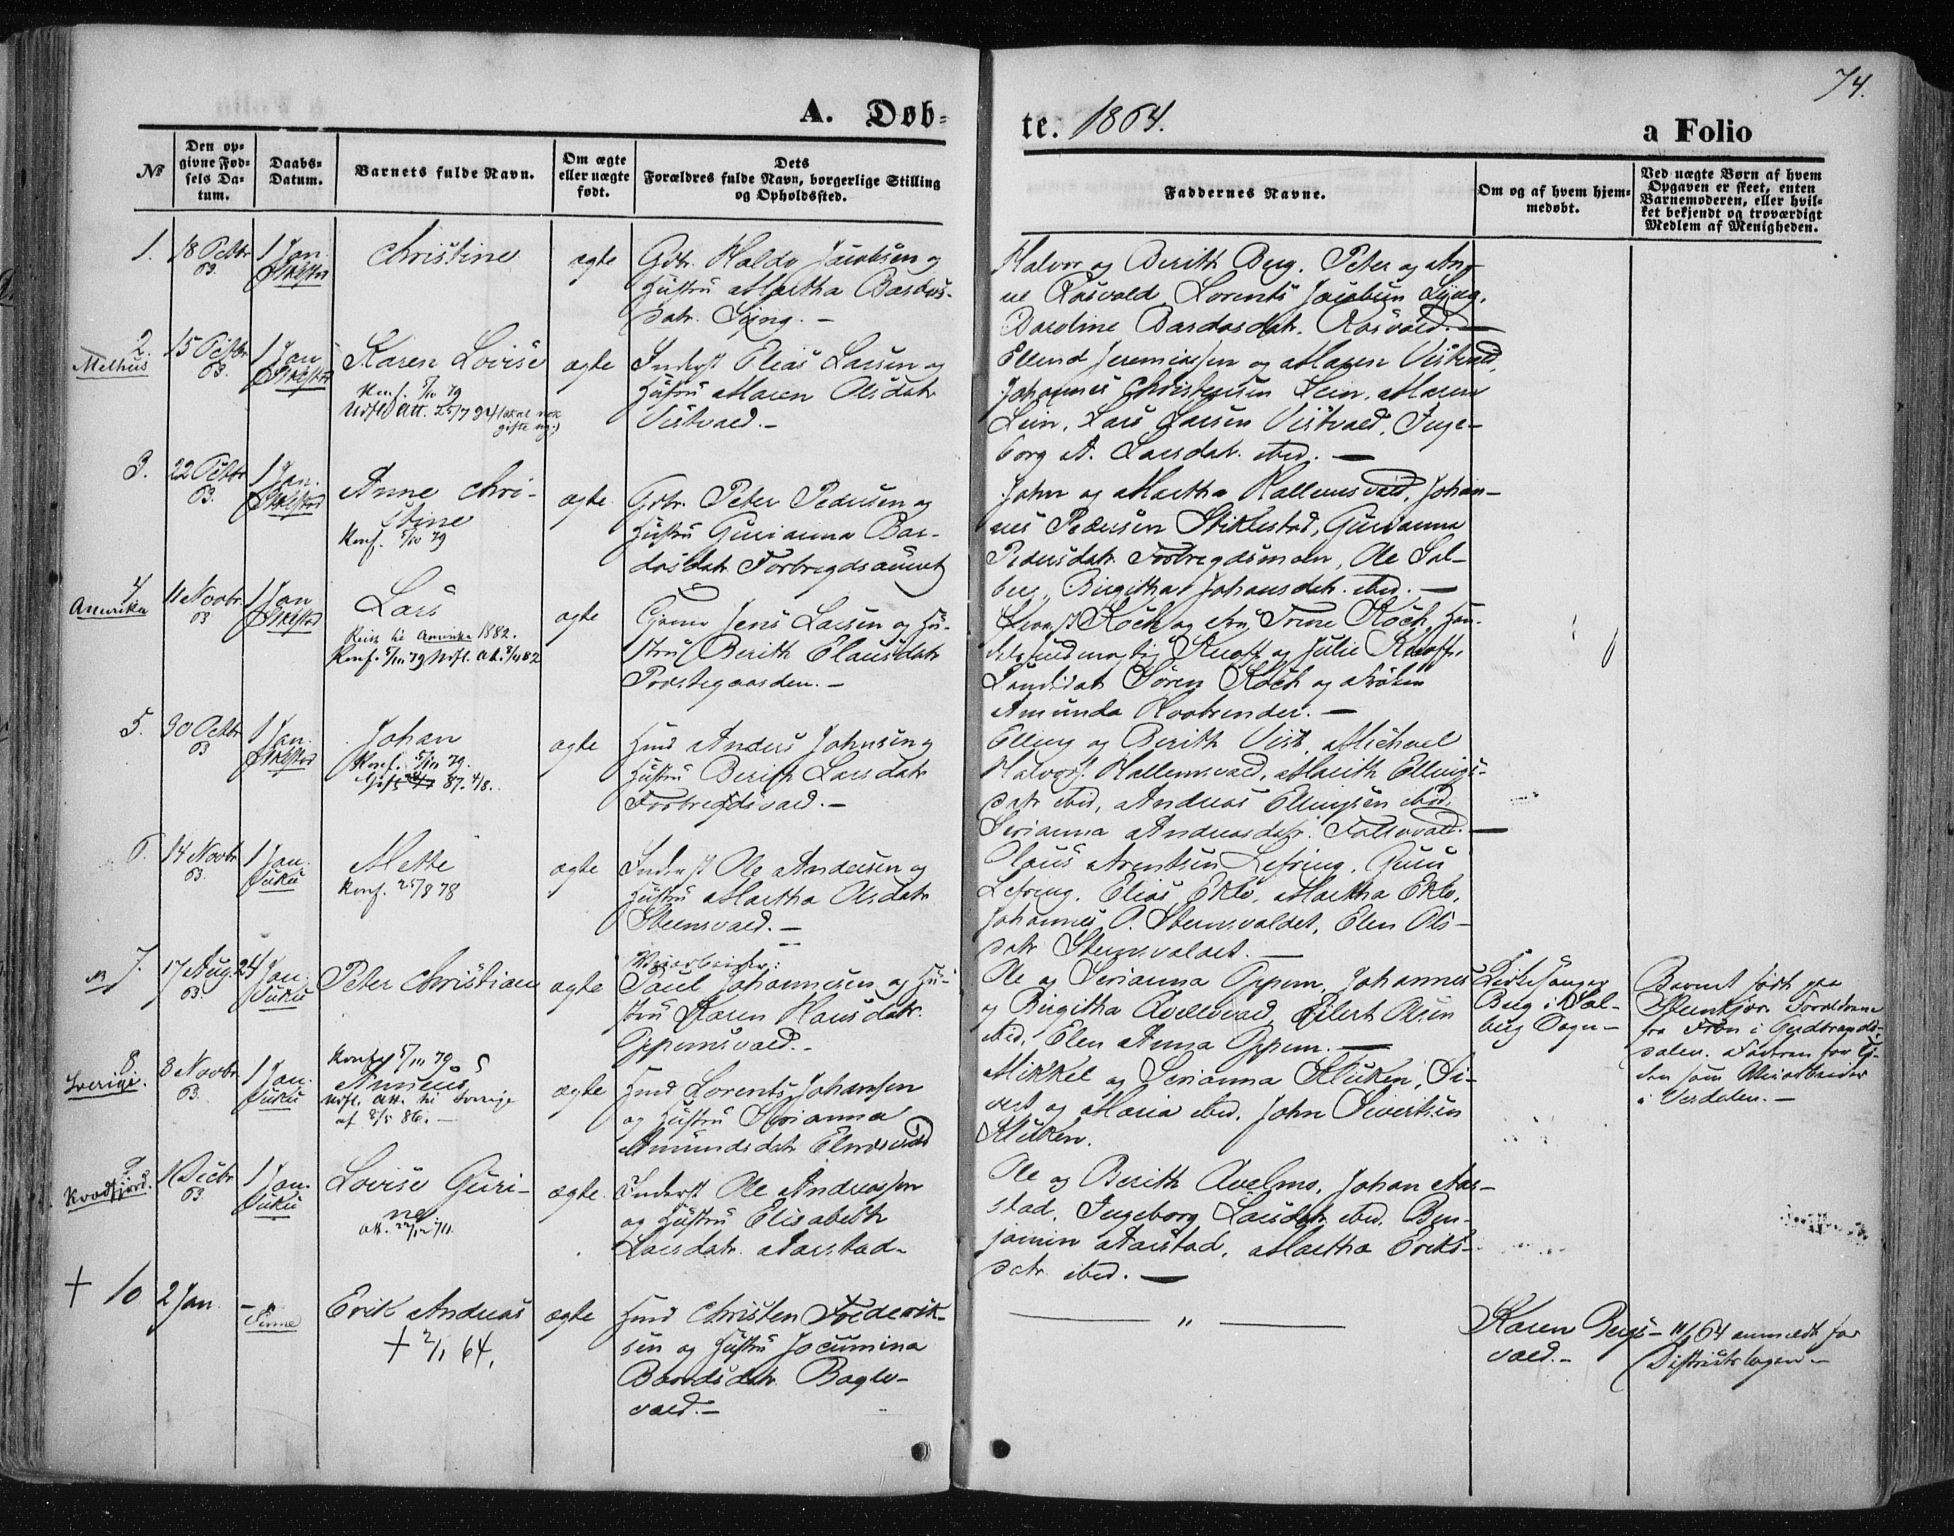 74.
A. Døb-
te. 1864.
a Folio
№
Den op-
givne Fød-
sels Da-
tum.
Daabs-
Datum.
Barnets fulde Navn.
Om ægte
eller uægte
født.
Dets
Forældres fulde Navn, borgerlige Stilling
og Opholdssted.
Faddernes Navne.
Om og af hvem hjem-
medøbt.
Ved uægte Børn af hvem
Opgaven er skeet, enten
Barnemoderen, eller hvil-
ket bekjendt og troværdigt
Medlem af Menigheden.
1. 18 Octbr 63. 1 Jan. Stklstad Christine ægte
Gdr. Haldo Jacobsen og
Hustru Martha Bardos-
datr. Lyng. —
Halvor og Berith Berg. Peter og An-
ne Rosvold, Lorents Jacobsen Lyng.
Bardine Bardosdatr. Rosvold. —
2. Melhus 15 Octbr 63. 1 Jan. Stklstad Karen Lovise ægte
Konf. 5/10 79
Udfl. Att. 25/7 94
Inderst Elias Larsen og
Hustru Maren Olsdatr
Vistvald. —
Ellend Jeremiassen og Maren Vistvald,
Johannes Christensen Lein. Maren
Lein, Lars Larsen Vistvald, Inge-
borg A. Larsdatr. ibid. —
3. 22 Octbr 63. 1 Jan. Stklstad Anne Chri-
stine ægte
Konf. 5/10 79
Gdr. Peter Pedersen og
Hustru Gurianna Bar-
dosdatr Forbregdsaunet
John og Martha Hallemsvald, Johan-
nes Pedersen Stiklestad, Gurianna
Pedersdatr Forbregdsmoen, Ole Sal-
berg, Birgitha Johansdatr. ibid. —
4. Amerika 11 Novbr. 63 1 Jan Stklstad Lars ægte
Reist til Amerika 1882.
Konf. 5/10 79 Udfl. Att. 82
Jens Larsen og Hu-
stru Berith Elausdatr
Præstegaarden. —
Koch og Fru Trine Koch, Han-
Knoff og Julie Knoff.
Candidat Søren Koch og Frøken
Amunda —
5. 30 Octbr 63 1 Jan. Stklstad Johan ægte
Konf. 5/10 79.
Gift 87. 4/8.
Hmd Anders Johnsen og
Hustru Berith Larsdatr
Forbregdsvald. —
Elling og Berith Vist, Michael
Halvors. Hallemsvald, Marith Ellings-
datr ibid, Andreas Ellingsen ibid.
Serianna Andreasdatr. —
6. 14 Novbr. 63. 1 Jan. Vuku Mette ægte
Konf. 25/8 78
Inderst Ole Andersen og
Hustru Martha Olsdatr
Steensvald. —
Olaus Arentsen Lefring, Guru
Lefring. Elias Eklo, Martha Eklo,
Johannes O. Stensvaldet, Elen Ols-
datr Stensvaldet. —
7. 17 Aug. 63. 24 Jan. Vuku Peter Christian ægte
Veiarbeider:
Paul Johannesen og Hu-
stru Karen Hansdatr.
Oppemsvald. —
Ole og Serianna Oppem, Johannes
og Birgitha Avelsvald, Eilert Olsen
ibid, Elen Anna Oppem. —
Kirkesanger
Berg i Sal-
berg Sogn —
Barnet født paa
Stenkjær. Forældrene
fra Fron i Gudbrands-
dalen. Faderen for Ti-
den som Veiarbeider
i Verdalen. —
8. Sverige. 3 Novbr. 63. 1 Jan. Vuku Amens ægte
Konf. 5/10 79
Udfl. Att. til Sverige
af 2/5 86. —
Hmd Lorents Johansen
og Hustru Serianna
Amundsdatr Elnesvald
Mikkel og Serianna Sluken, Si-
vert og Maria ibid. John Sivertsen
Sluken.
9. Kvædfjord. 1 Decbr. 63. 1 Jan. Vuku Lovise Guri-
ne ægte
Att.
Inderst Ole Andreassen
og Hustru Elisabeth
Larsdatr. Aarstad —
Ole og Berith Avelmo, Johan Aar-
stad, Ingeborg Larsdatr ibid. Ben-
jamin Aarstad, Martha Eriks-
datr ibid. —
+ 10 2 Jan. — Erik Andreas ægte
+ 2/1 64.
Hmd Christen Frederik-
sen og Hustru Jocumina
Baardsdatr. Bagle-
vald. —
— " —
Karen Bergs-
vald. —
11/1 64 anmeldt for
Distriktslægen —